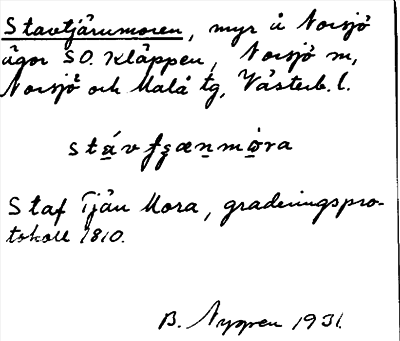 Stavtjärnmoren, myr å Norsjö
ägor SO. Kläppen, Norsjö sn,
Norsjö och Malå tg, Västerb. l.
stá̱vʄʂæṉmò̱ra
Staf Tjän Mora, graderingspro-
tokoll 1810.
B. Nyman 1931.